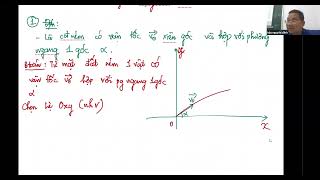 ① Đ/n:
- Là cđ ném có vận tốc v₀ xiên góc và hợp với phương
ngang 1 góc α.
Bài toán: Từ mặt đất ném 1 vật có
vận tốc v₀ hợp với pg ngang 1 góc
α
Chọn hệ Oxy (nhv)
y
v₀
α
O
x